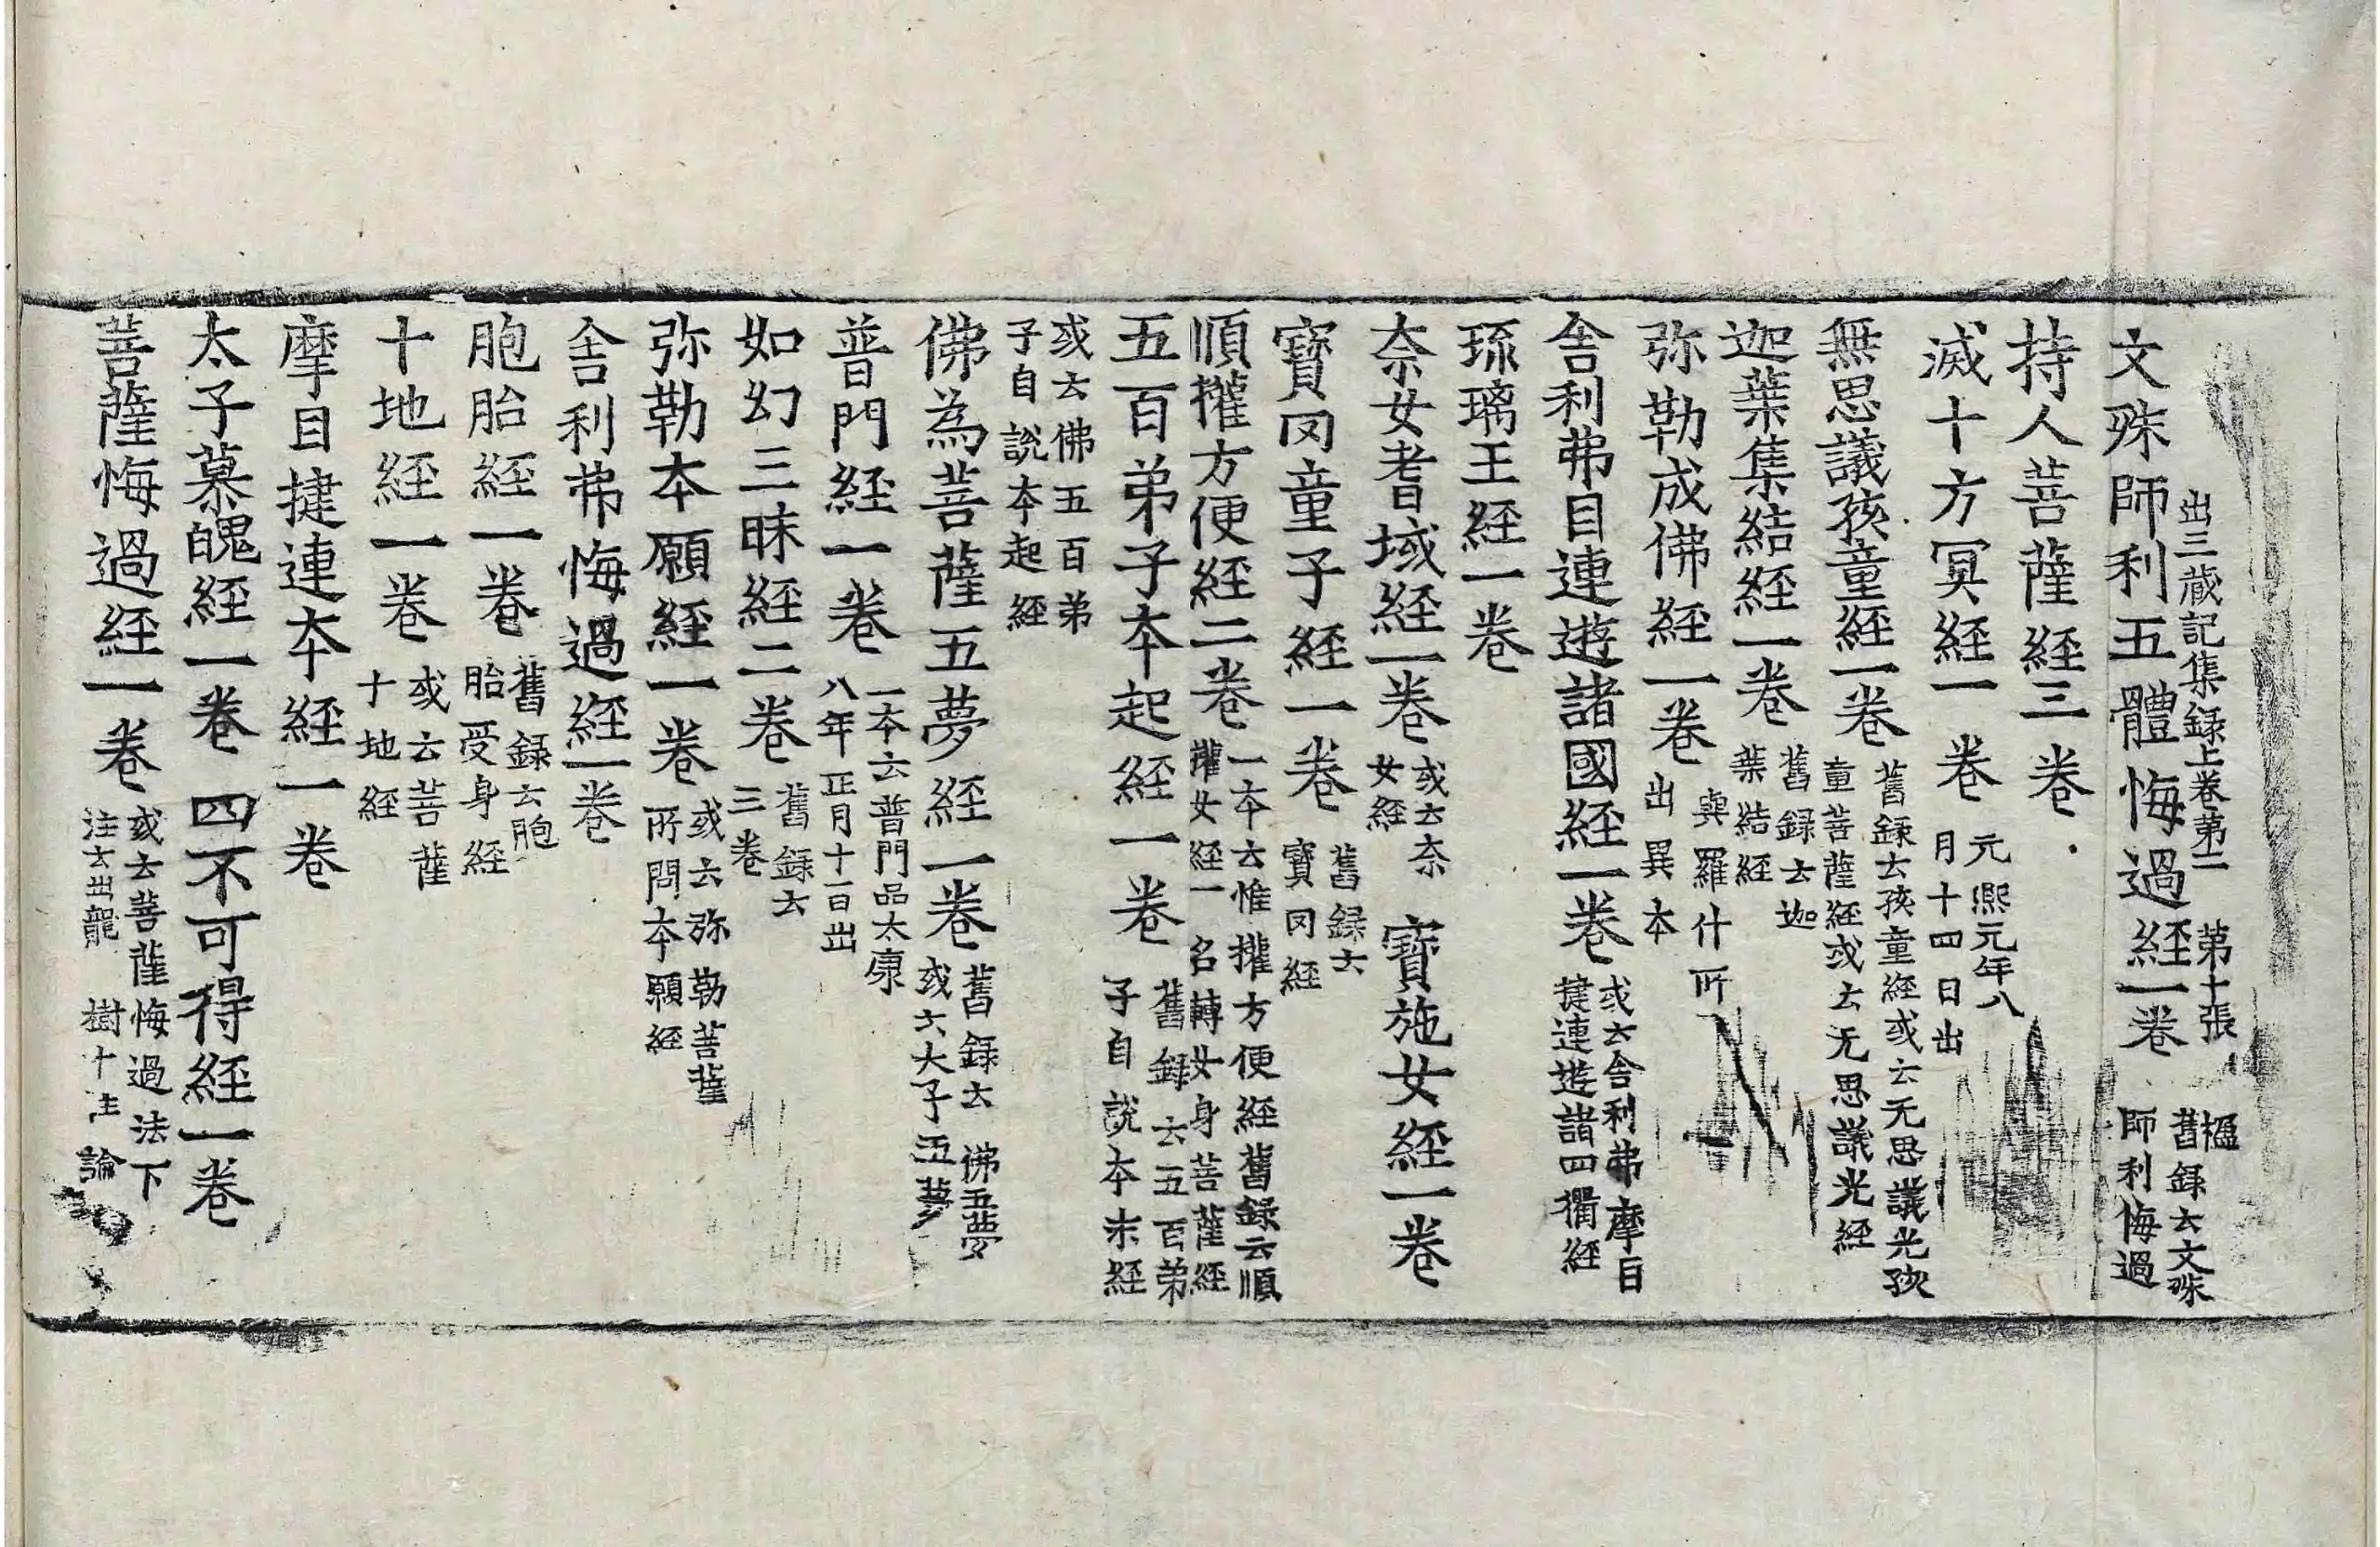 出三藏記集録上卷第二 第十張 楹
文殊師利五體悔過経一卷 舊録云文殊師利悔過
持人菩薩経三卷
滅十方冥経一卷 元熙元年八月十四日出
無思議孩童経一卷 舊録云孩童経或云无思議光孩童菩薩経或云无思議光経
迦葉集結経一卷 舊録云迦葉結経
弥勒成佛経一卷 與羅什所出異本
舍利弗目連遊諸國経一卷 或云舍利弗摩目揵連遊諸四衢経
琉璃王経一卷
奈女耆域経一卷 或云奈女経 寶施女経一卷
寶罔童子経一卷 舊録云寶罔経
順權方便経二卷 一本云惟權方便経舊録云順權女経一名轉女身菩薩経
五百弟子本起経一卷 舊録云五百弟子自說本末経
或云佛五百弟子自說本起経
佛為菩薩五夢経一卷 舊録云佛五夢或云大子五夢
普門経一卷 一本云普門品太康八年正月十一日出
如幻三昧経二卷 舊録云三卷
弥勒本願経一卷 或云弥勒菩薩所問本願経
舍利弗悔過経一卷
胞胎経一卷 舊録云胞胎受身経
十地経一卷 或云菩薩十地経
摩目揵連本経一卷
太子慕魄経一卷 四不可得経一卷
菩薩悔過経一卷 或云菩薩悔過法下注云出龍樹十住論